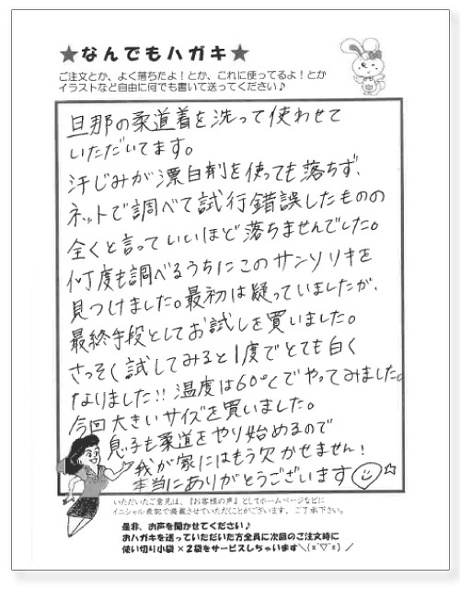 ★なんでもハガキ★
ご注文とか、よく落ちたよ！とか、これに使ってるよ！とか
イラストなど自由に何でも書いて送ってください♪
旦那の柔道着を洗って使わせて
いただいてます。
汗じみが漂白剤を使っても落ちず、
ネットで調べて試行錯誤したものの
全くと言っていいほど落ちませんでした。
何度も調べるうちにこのサンソリキを
見つけました。最初は疑っていましたが、
最終手段としてお試しを買いました。
さっそく試してみると1度でとても白く
なりました!! 温度は60℃でやってみました。
今回大きいサイズを買いました。
息子も柔道をやり始めるので
我が家にはもう欠かせません！
本当にありがとうございます☺☆
いただいたご意見は、『お客様の声』としてホームページなどに
イニシャル表記で掲載させていただくことがございます。ご了承下さい。
是非、お声を聞かせてください♪
おハガキを送っていただいた方全員に次回のご注文時に
使い切り小袋×2袋をサービスしちゃいます＼(=^▽^=)／